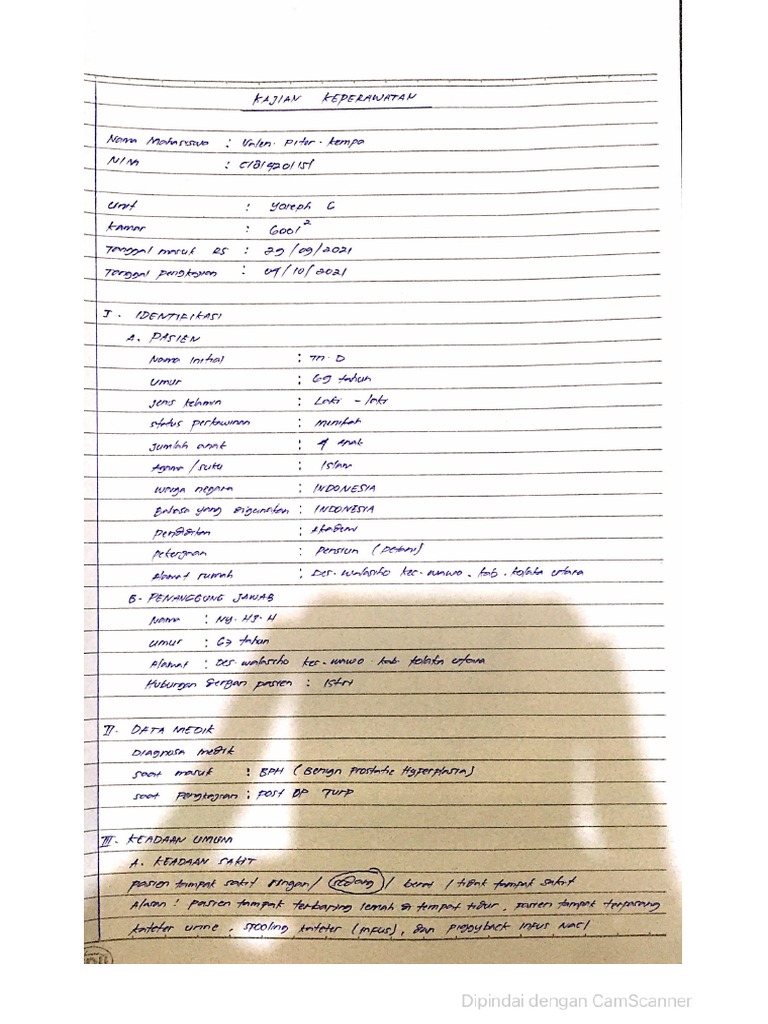 KAJIAN KEPERAWATAN
Nama Mahasiswa : Valen Piter Kempa
NIM :
Unit : Yoseph 6
Kamar : 6001²
Tanggal masuk RS : 29/09/2021
Tanggal pengkajian : 04/10/2021
I. IDENTIFIKASI
A. PASIEN
Nama Initial : Tn. D
Umur : 69 tahun
Jenis kelamin : Laki - laki
Status perkawinan : menikah
Jumlah anak : 4 Anak
Agama / suku : Islam
Warga negara : INDONESIA
Bahasa yang digunakan : INDONESIA
Pendidikan : Akademi
Pekerjaan : Pensiun (Petani)
Alamat rumah : Des. walasiho kec. wawo. kab. kolaka utara
B. PENANGGUNG JAWAB
Nama : Ny. Hj. H
Umur : 63 tahun
Alamat : Des. walasiho kec. wawo. kab. kolaka utara
Hubungan dengan pasien : Istri
II. DATA MEDIK
Diagnosa medik
Saat masuk : BPH (Benign Prostatic Hyperplasia)
Saat Pengkajian : Post OP TURP
III. KEADAAN UMUM
A. KEADAAN SAKIT
Pasien tampak sakit ringan / sedang / berat / tidak tampak sakit
Alasan : pasien tampak terbaring lemah di tempat tidur, pasien tampak terpasang
kateter urine, spooling kateter (infus), dan piggyback infus NaCl
Dipindai dengan CamScanner